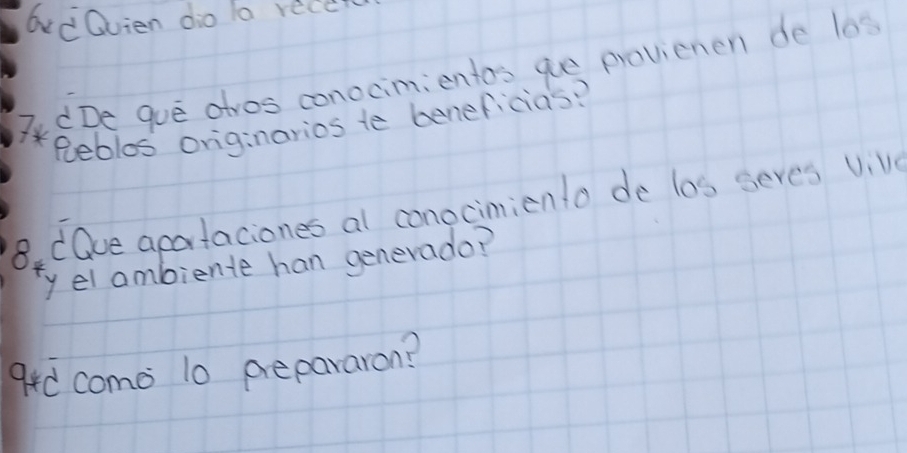 6* ¿Quien dio lo
7* ¿De qué otros conocimientos que provienen de los
Pueblos originarios te beneficias?
8* ¿Que aportaciones al conocimiento de los seres vivo
y el ambiente han generado?
9* ¿como lo prepararon?